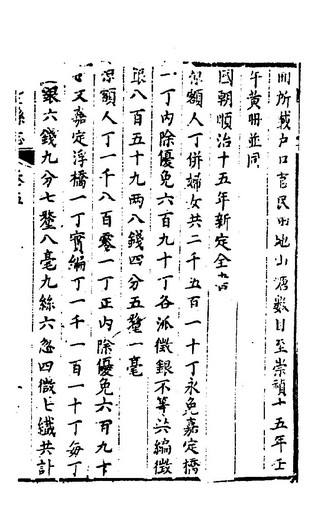 間所載戶口官民田地山塘數目至崇禎十五年壬
午黃冊並同
國朝順治十五年新定全書
原額人丁併婦女共二千五百一十丁永免嘉定橋
一丁內除優免六百九十丁各派徵銀不等共編徵
銀八百五十九兩八錢四分五釐一毫
原額人丁一千八百零一丁正內除優免六百九十
丁又嘉定浮橋一丁實編丁一千一百一十丁每丁
銀六錢九分七釐八毫九絲六忽四微七纖共計
縣志 卷五